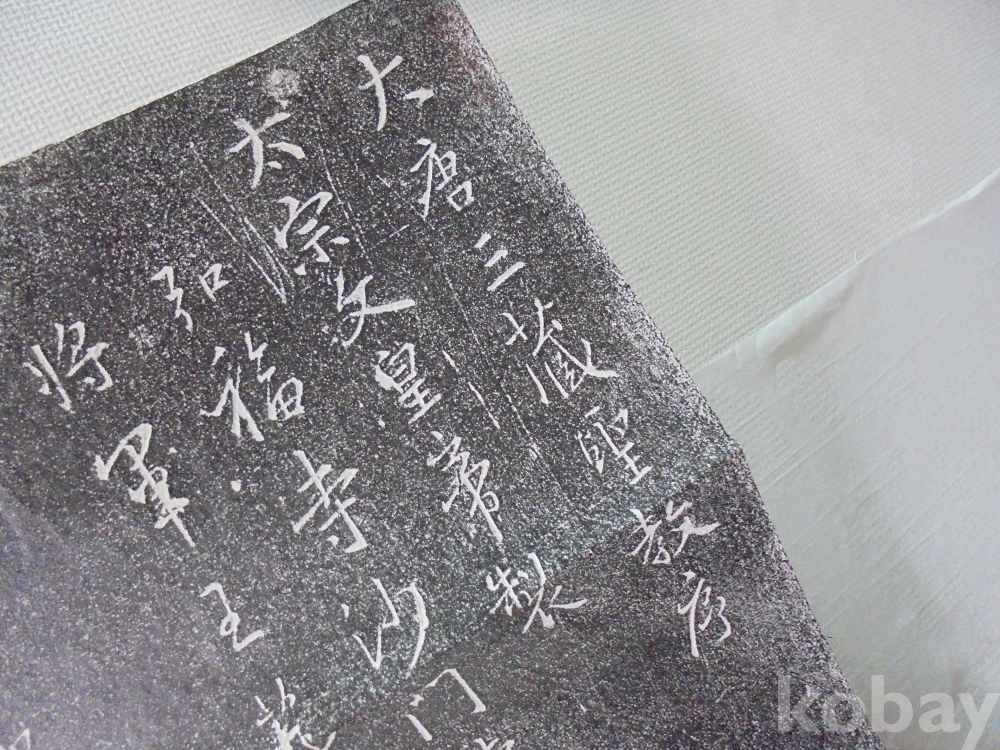 大唐三藏聖教序
太宗文皇帝製
弘福寺沙门
将軍王羲
kobay